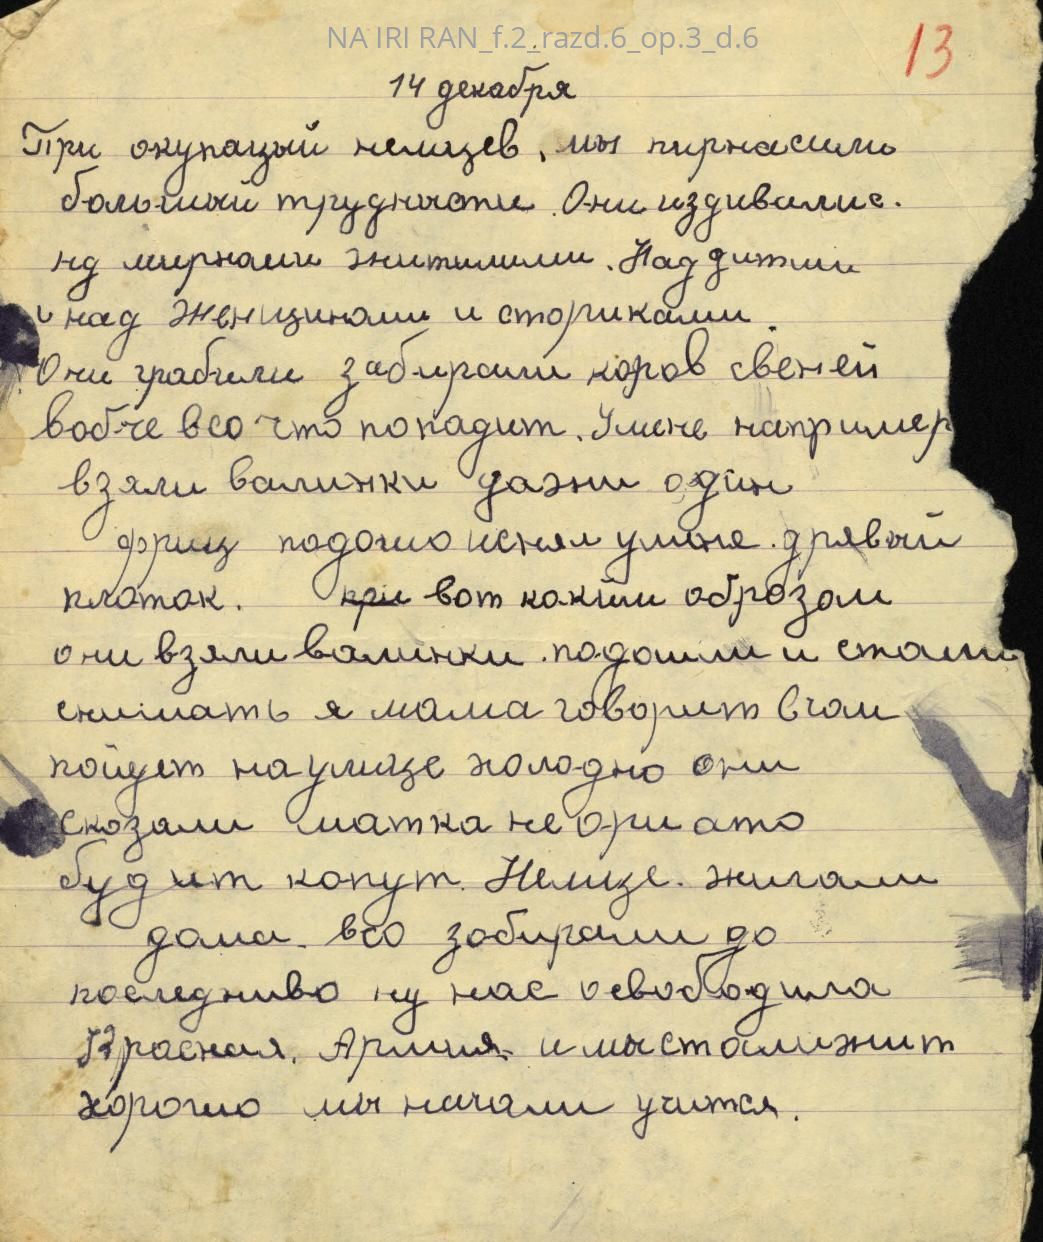 NA IRI RAN_f.2_razd.6_op.3_d.6
13
14 декабря
При окупацый немцев, мы пирнасили
большый труднысти. Они издивалис.
нд мирнами жителими. Над дитми
и над женщинами и сториками.
Они грабили забирали коров свеней
вобче всо что попадит. Умене например
взяли валинки дажи один
фриц подошо и снял умена. дрявый
платок. при вот какими образом
они взяли валинки. подошли и стали
снимать я мама говорит вчом
пойдет на улице холодно они
сказали матка не ори ато
будит капут. Немце. жигали
дома. всо забирали до
последниво ну нас освободила
Красная. Армия. и мы стали жит
хорошо мы начали учится.